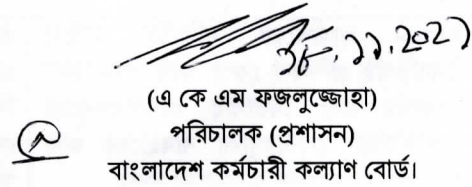 (এ কে এম ফজলুজ্জোহা)
পরিচালক (প্রশাসন)
বাংলাদেশ কর্মচারী কল্যাণ বোর্ড।